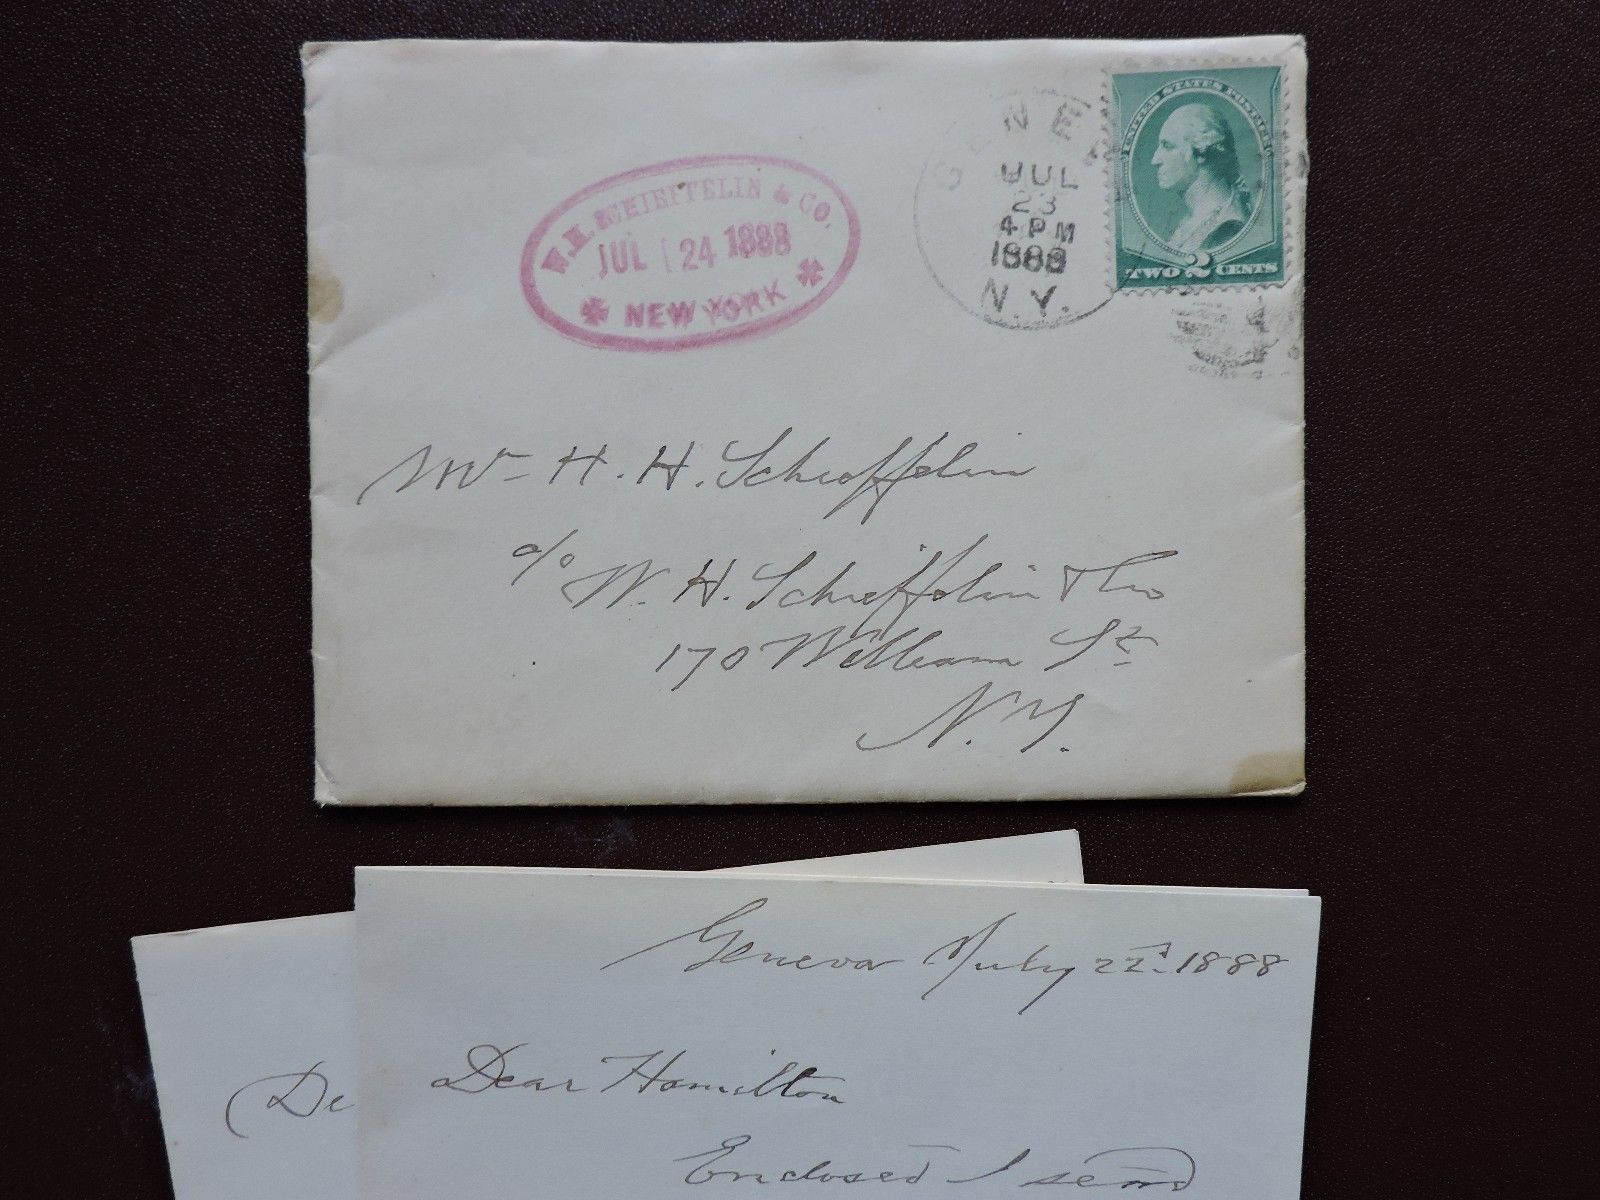 W.H. SCHIEFFELIN & CO.
JUL 24 1888
NEW YORK
GENEVA
JUL
23
4 PM
1888
N.Y.
UNITED STATES POSTAGE
TWO 2 CENTS
Mr H. H. Schieffelin
c/o W. H. Schieffelin & Co
170 William St
N.Y.
Geneva July 22d. 1888
Dear Hamilton
Enclosed I send
De